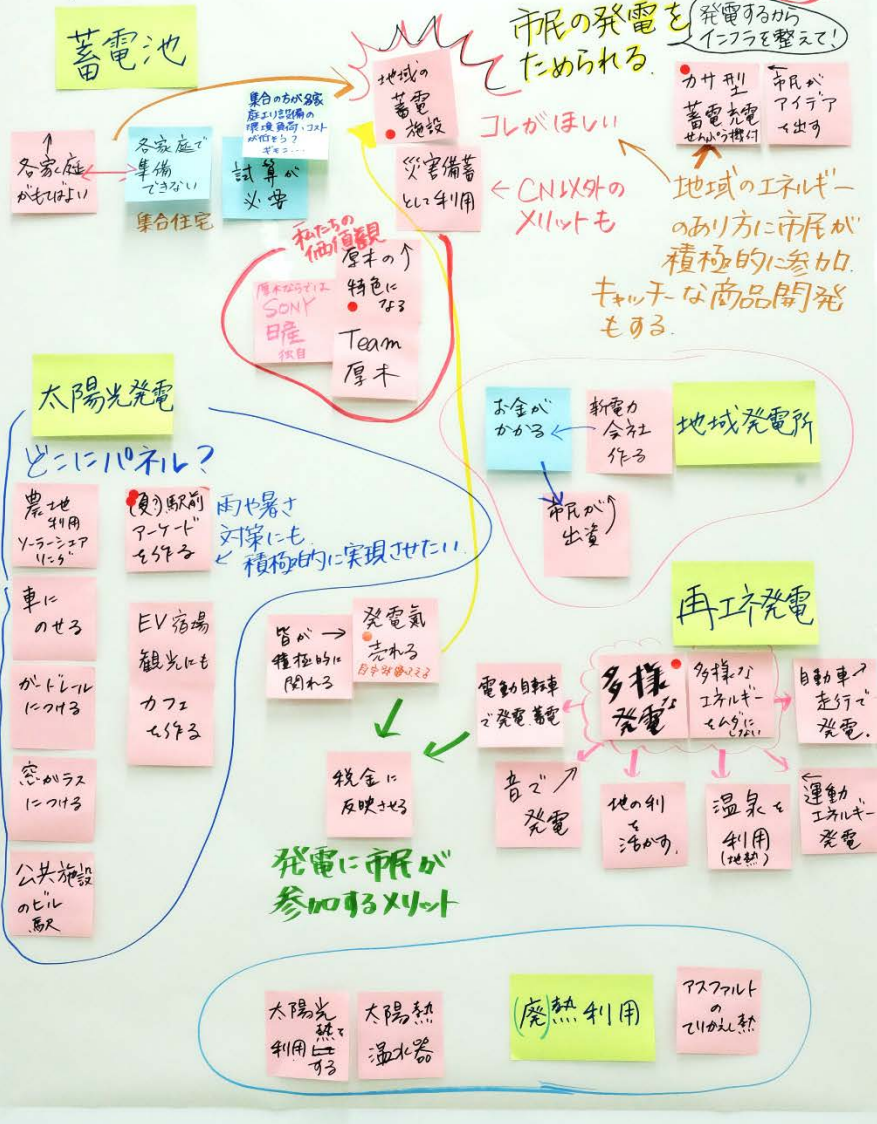 蓄電池
市民の発電を
ためられる
発電するから
インフラを整えて!
各家庭
がもてばよい
各家庭で
準備
できない
集合住宅
集合の方が各家
庭より設備の
環境負荷、コスト
試算が
必要
地域の
蓄電
施設
コレがほしい
災害備蓄
として利用
CN以外の
メリットも
カサ型
蓄電充電
せんぷう機付
市民が
アイデア
を出す
地域のエネルギー
のあり方に市民が
積極的に参加
キャッチーな商品開発
もする
私たちの
価値観
厚木ならでは
SONY
日産
独自
厚木の
特色に
なる
Team
厚木
太陽光発電
どこにパネル?
農地
利用
ソーラーシェア
リング
駅前
アーケード
を作る
雨や暑さ
対策にも
積極的に実現させたい
車に
のせる
ガードレール
につける
窓ガラス
につける
公共施設
のビル
駅
EV宿場
観光にも
カフェ
を作る
お金が
かかる
新電力
会社
作る
地域発電所
市民が
出資
皆が
積極的に
関れる
発電氣
売れる
税金に
反映させる
発電に市民が
参加するメリット
再エネ発電
電動自転車
で発電、蓄電
多様な
発電
多様な
エネルギー
をムダに
しない
自動車
走行で
発電。
音で
発電
地の利
を
活かす。
温泉を
利用
(地熱)
運動
エネルギー
発電
太陽光
熱で
利用
する
太陽熱
温水器
(廃)熱利用
アスファルト
の
てりかえし熱